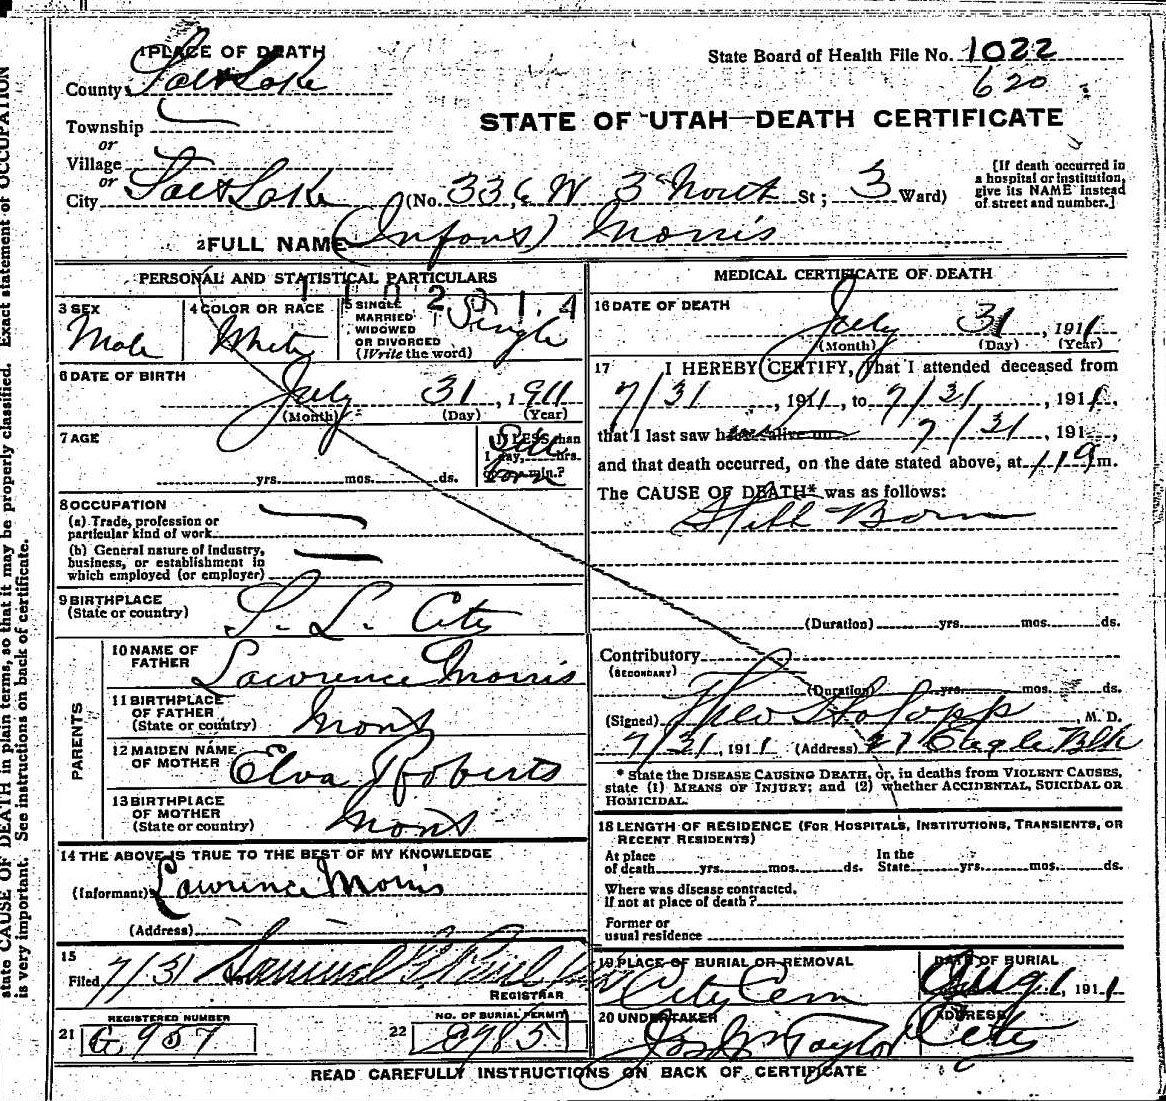 1 PLACE OF DEATH
County Salt Lake
Township
or
Village
or
City Salt Lake (No. 336 W 3 North St; 3 Ward)
State Board of Health File No. 1022
620
STATE OF UTAH—DEATH CERTIFICATE
[If death occurred in
a hospital or institution,
give its NAME instead
of street and number.]
2 FULL NAME (Infant) Morris
PERSONAL AND STATISTICAL PARTICULARS
3 SEX
Male
4 COLOR OR RACE
White
5 SINGLE
MARRIED
WIDOWED
OR DIVORCED
(Write the word)
Single
6 DATE OF BIRTH
July 31, 1911
(Month) (Day) (Year)
7 AGE
yrs. mos. ds.
If LESS than
1 day, hrs.
or min.?
Still
born
8 OCCUPATION
(a) Trade, profession or
particular kind of work
(b) General nature of industry,
business, or establishment in
which employed (or employer)
9 BIRTHPLACE
(State or country)
S. L. City
PARENTS
10 NAME OF
FATHER
Lawrence Morris
11 BIRTHPLACE
OF FATHER
(State or country)
12 MAIDEN NAME
OF MOTHER
Elva Roberts
13 BIRTHPLACE
OF MOTHER
(State or country)
14 THE ABOVE IS TRUE TO THE BEST OF MY KNOWLEDGE
(Informant) Lawrence Morris
(Address)
15
Filed 7/31 Samuel G. Paul
REGISTRAR
REGISTERED NUMBER
21 G 957
NO. OF BURIAL PERMIT
22 8985
MEDICAL CERTIFICATE OF DEATH
16 DATE OF DEATH
July 31, 1911
(Month) (Day) (Year)
17 I HEREBY CERTIFY, That I attended deceased from
7/31, 1911, to 7/31, 1911,
that I last saw h alive on 7/31, 191 ,
and that death occurred, on the date stated above, at m.
The CAUSE OF DEATH* was as follows:
Still Born
(Duration) yrs. mos. ds.
Contributory
(SECONDARY)
(Duration) yrs. mos. ds.
(Signed) Theo , M. D.
7/31, 1911 (Address) 27 Eagle Blk
* State the DISEASE CAUSING DEATH, or, in deaths from VIOLENT CAUSES,
state (1) MEANS OF INJURY; and (2) whether ACCIDENTAL, SUICIDAL OR
HOMICIDAL.
18 LENGTH OF RESIDENCE (FOR HOSPITALS, INSTITUTIONS, TRANSIENTS, OR
RECENT RESIDENTS)
At place
of death yrs. mos. ds.
In the
State yrs. mos. ds.
Where was disease contracted,
if not at place of death?
Former or
usual residence
19 PLACE OF BURIAL OR REMOVAL
City Cem
DATE OF BURIAL
Aug 1, 1911
20 UNDERTAKER
Jos Wm Taylor
ADDRESS
City
READ CAREFULLY INSTRUCTIONS ON BACK OF CERTIFICATE
state CAUSE OF DEATH in plain terms, so that it may be properly classified. Exact statement of OCCUPATION
is very important. See instructions on back of certificate.